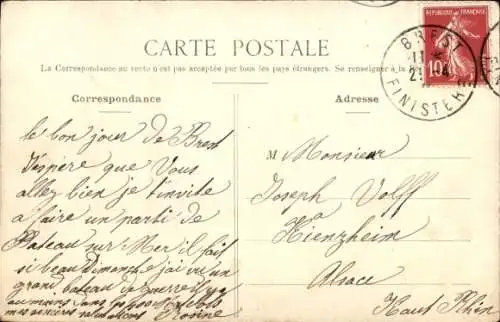 REPUBLIQUE FRANÇAISE
10
BREST
FINISTERE
CARTE POSTALE
La Correspondance au verso n'est pas acceptée par tous les pays étrangers. Se renseigner à la
Correspondance
Adresse
le bon jour de Brest
J'espère que Vous
allez bien je t'invite
a faire un parti de
Bateau sur Mer il fait
si beau Dimanche j'ai vu un
grand bateau de guerre il y a
au moins
mes sincères salutations Yvonne
M Monsieur
Joseph Volff
a
Kienzheim
Alsace
Haut Rhin